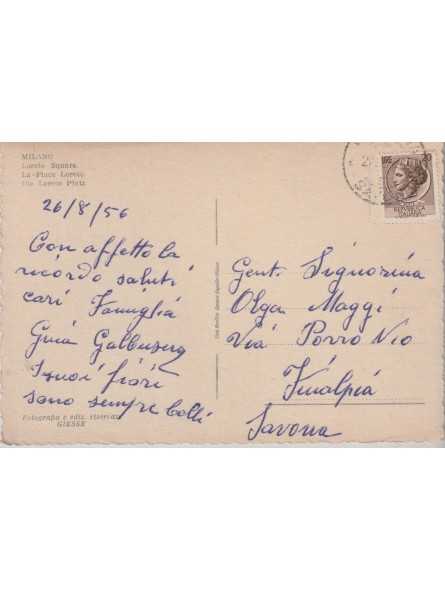 MILANO
Loreto Square.
La Place Loreto
Die Loreto Platz
26/8/56
Con affetto la
ricordo saluti
cari Famiglia
Galbusera
I suoi fiori
sono sempre belli
Fotografia e ediz. riservata
GIESSE
Gent. Signorina
Olga Maggi
Via Porro Nio
Finalpia
Savona